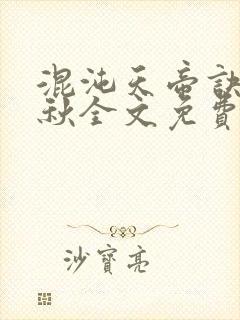 混沌天帝訣
秋全文免費
沙寶亮